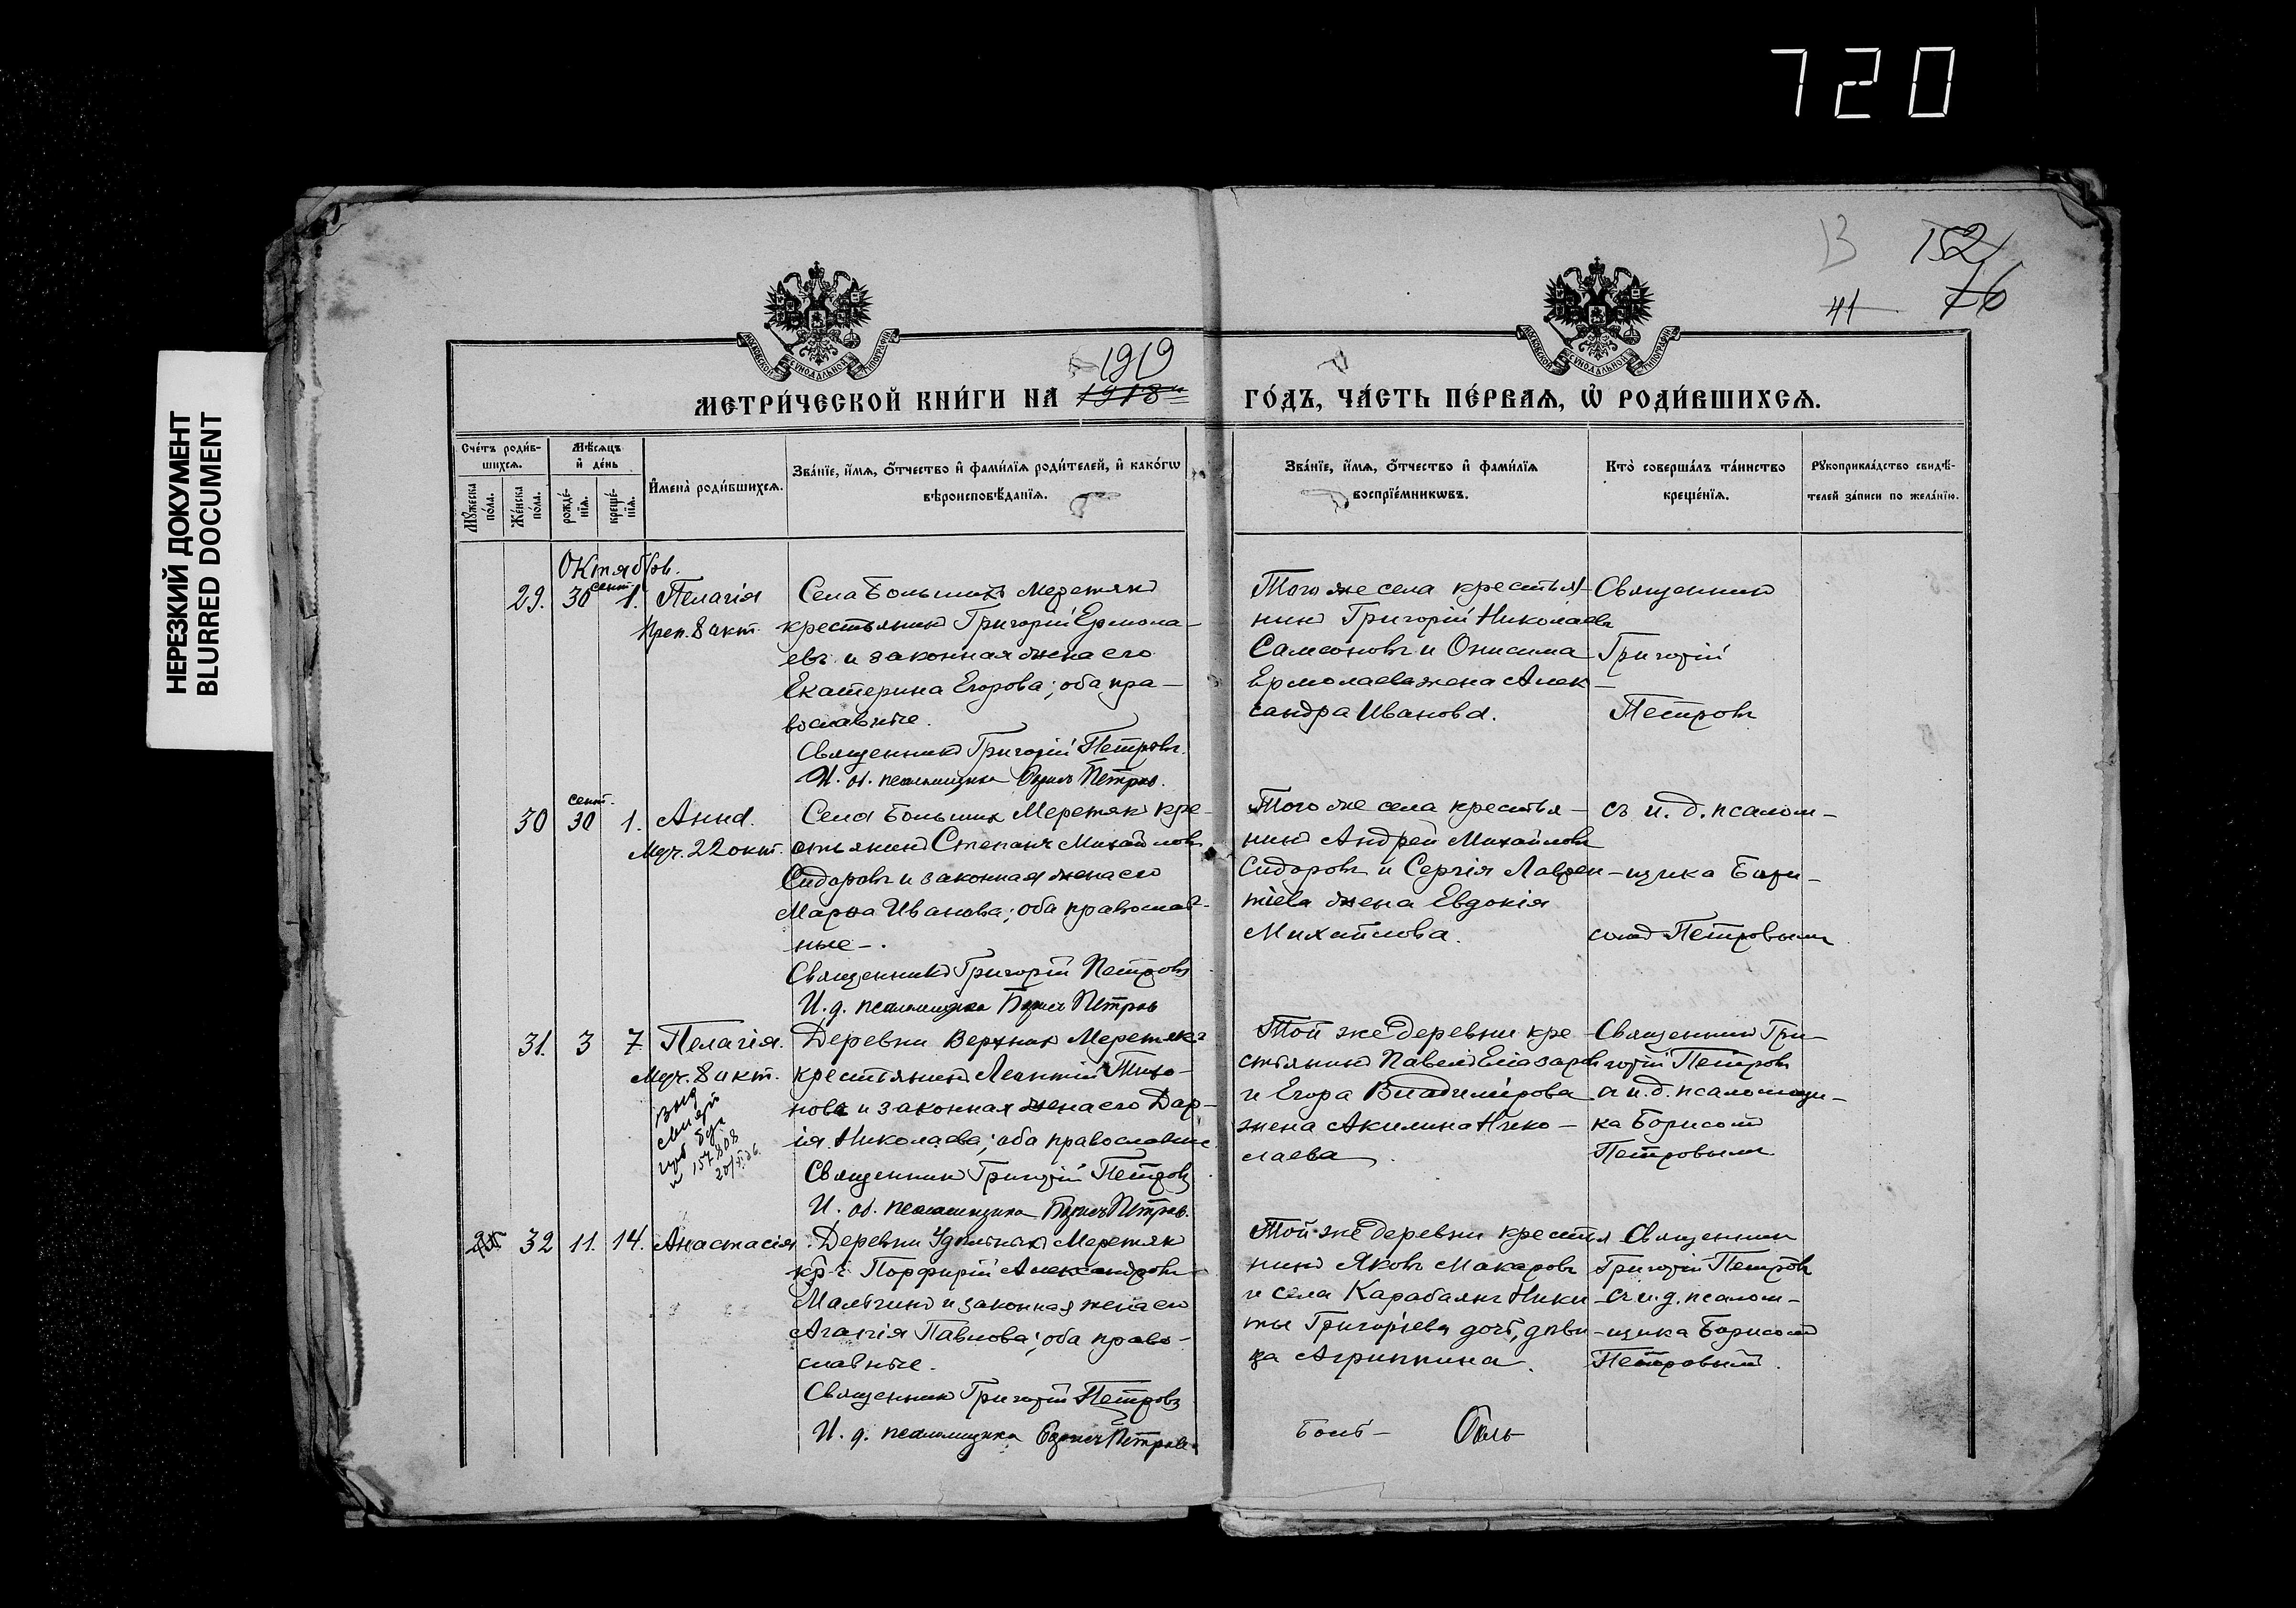 720
НЕРЕЗКИЙ ДОКУМЕНТ
BLURRED DOCUMENT
В 152
41 76
МОСКОВСКОЙ СѴНОДАЛЬНОЙ ТИПОГРАФІИ
МОСКОВСКОЙ СѴНОДАЛЬНОЙ ТИПОГРАФІИ
1919
МЕТРИ́ЧЕСКОЙ КНИ́ГИ НА 1918 ГО́ДЪ, ЧА́СТЬ ПЕ́РВАѦ, Ѡ҆ РОДИ́ВШИХСѦ.
Сче́тъ роди́в-
шихсѧ.
Мꙋ́жеска по́ла.
Же́нска по́ла.
Мѣ́сѧцъ
и҆ де́нь
рожде́-
нїѧ.
креще́-
нїѧ.
И҆мена̀ роди́вшихсѧ.
Зва́нїе, и҆́мѧ, о҆́тчество и҆ фами́лїѧ роди́телей, и҆ како́гѡ
вѣроисповѣ́данїѧ.
Зва́нїе, и҆́мѧ, о҆́тчество и҆ фами́лїѧ
воспрїе́мникѡвъ.
Кто̀ соверша́лъ та́инство
креще́нїѧ.
Рꙋкоприкла́дство свидѣ́-
телей за́писи по жела́нїю.
Октябрь.
29. 30 сент. 1. Пелагія
Преп. 8 окт.
Села Большихъ Меретякъ
крестьянинъ Григорій Ермола-
евъ и законная жена его
Екатерина Егорова; оба пра-
вославные.
Священникъ Григорій Петровъ.
И. об. псаломщика Борисъ Петровъ.
Того же села крестья-
нинъ Григорій Николаевъ
Самсоновъ и Онисима
Ермолаева жена Алек-
сандра Иванова.
Священник
Григорій
Петровъ
30 сент. 30 1. Анна.
Муч. 22 окт.
Села Большихъ Меретякъ кре-
стьянинъ Степанъ Михайловъ
Сидоровъ и законная жена его
Марѳа Иванова; оба православ-
ные.
Священникъ Григорій Петровъ
И. д. псаломщика Борисъ Петровъ
Того же села крестья-
нинъ Андрей Михайловъ
Сидоровъ и Сергія Лаврен-
тіева жена Евдокія
Михайлова.
съ и. д. псалом-
щика Бори-
сомъ Петровымъ
31. 3 7 Пелагія.
Муч. 8 окт.
157808
Деревни Верхнихъ Меретякъ
крестьянинъ Леонтій Тихо-
новъ и законная жена его Дар-
ія Николаева; оба православные
Священник Григорій Петровъ
И. об. псаломщика Борисъ Петровъ.
Той же деревни кре-
стьянинъ Павелъ Елізаровъ
и Егора Владимірова
жена Акилина Нико-
лаева.
Священник Гри-
горій Петровъ
с и. д. псаломщи-
ка Борисомъ
Петровымъ.
32 11. 14. Анастасія.
Деревни Удѣльныхъ Меретякъ
кр-ъ Порфирій Александровъ
Малыгинъ и законная жена его
Агапія Павлова; оба право-
славные.
Священник Григорій Петровъ
И. д. псаломщика Борисъ Петровъ
Той же деревни крестья
нинъ Яковъ Макаровъ
и села Карабаянъ Ники-
ты Григорьева дочь, дѣви-
ца Агриппина.
Священник
Григорій Петровъ
съ и. д. псалом-
щика Борисомъ
Петровымъ.